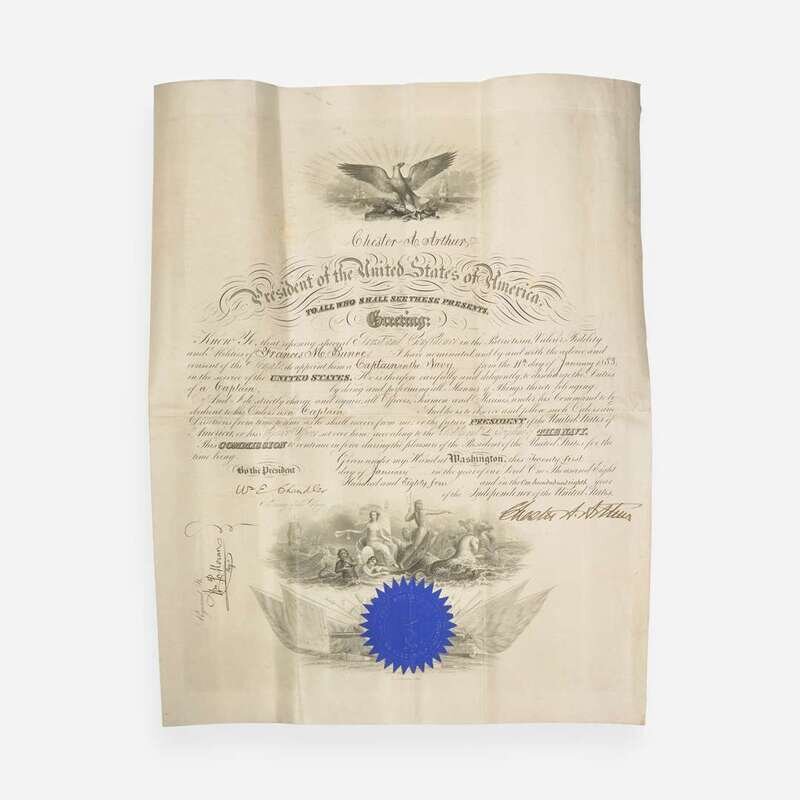 Chester A Arthur,
President of the United States of America.
TO ALL WHO SHALL SEE THESE PRESENTS,
Greeting:
Know Ye, that reposing special Trust and Confidence in the Patriotism, Valor, Fidelity
and Abilities of Francis M. I have nominated and by and with the advice and
consent of the Senate do appoint him a Captain in the Navy from the 11th day of January 1883,
in the service of the UNITED STATES. He is therefore carefully and diligently to discharge the Duties
of a Captain by doing and performing all Manner of Things thereto belonging.
And I do strictly charge and require all Officers, Seamen and Marines under his Command to be
obedient to his Orders as a Captain And he is to observe and follow such Orders and
Directions from time to time as he shall receive from me, or the future PRESIDENT of the United States of
America, or his set over him, according to the THE NAVY.
This COMMISSION to continue in force during the pleasure of the President of the United States, for the
time being.
Given under my Hand at Washington, this Twenty first
By the President
day of January in the year of our Lord One Thousand Eight
Hundred and Eighty four and in the One hundred and eighth year
Wm E. Chandler
of the Independence of the United States.
Chester A. Arthur